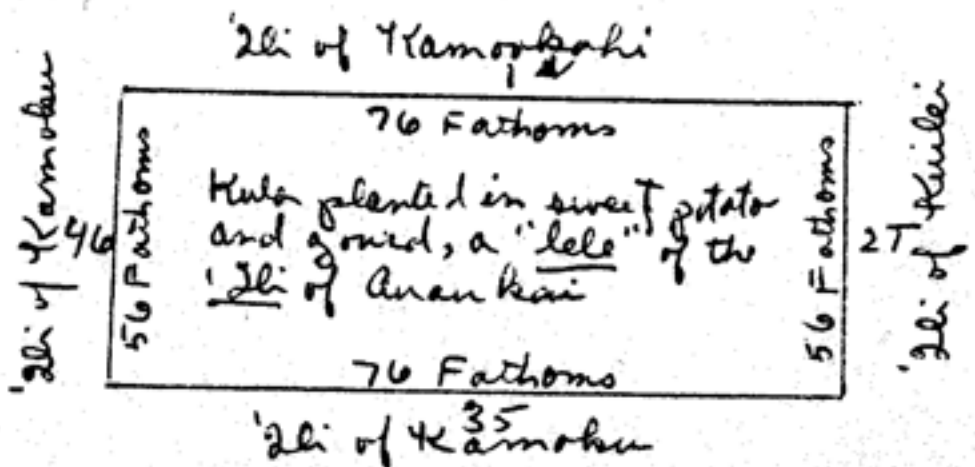 'Ili of Kamookahi
1
76 Fathoms
'Ili of Kamoku
46
56 Fathoms
Kula planted in sweet potato
and gourd, a "lele" of the
'Ili of Anaukai
56 Fathoms
2T
'Ili of Keulei
76 Fathoms
35
'Ili of Kamoku